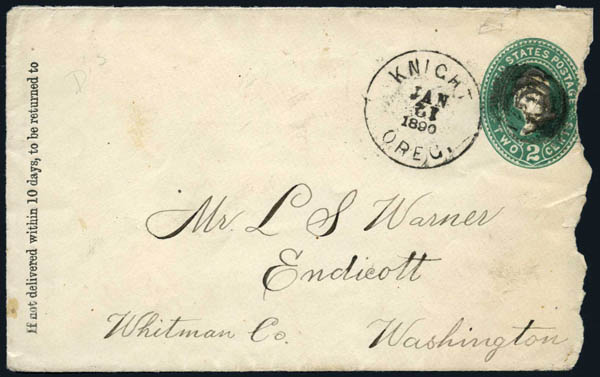 If not delivered within 10 days, to be returned to
D's
KNIGHT
JAN
31
1890
OREG.
STATES POSTAG
TWO 2 CENTS
Mr. L S Warner
Endicott
Whitman Co. Washington